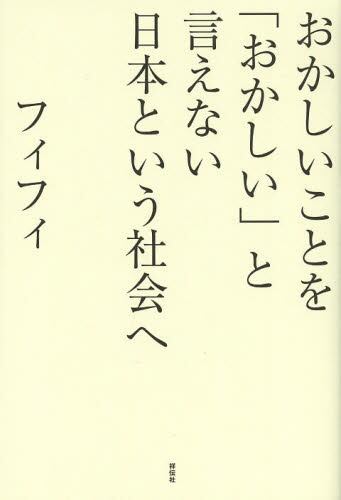 おかしいことを
「おかしい」と
言えない
日本という社会へ
フィフィ
祥伝社